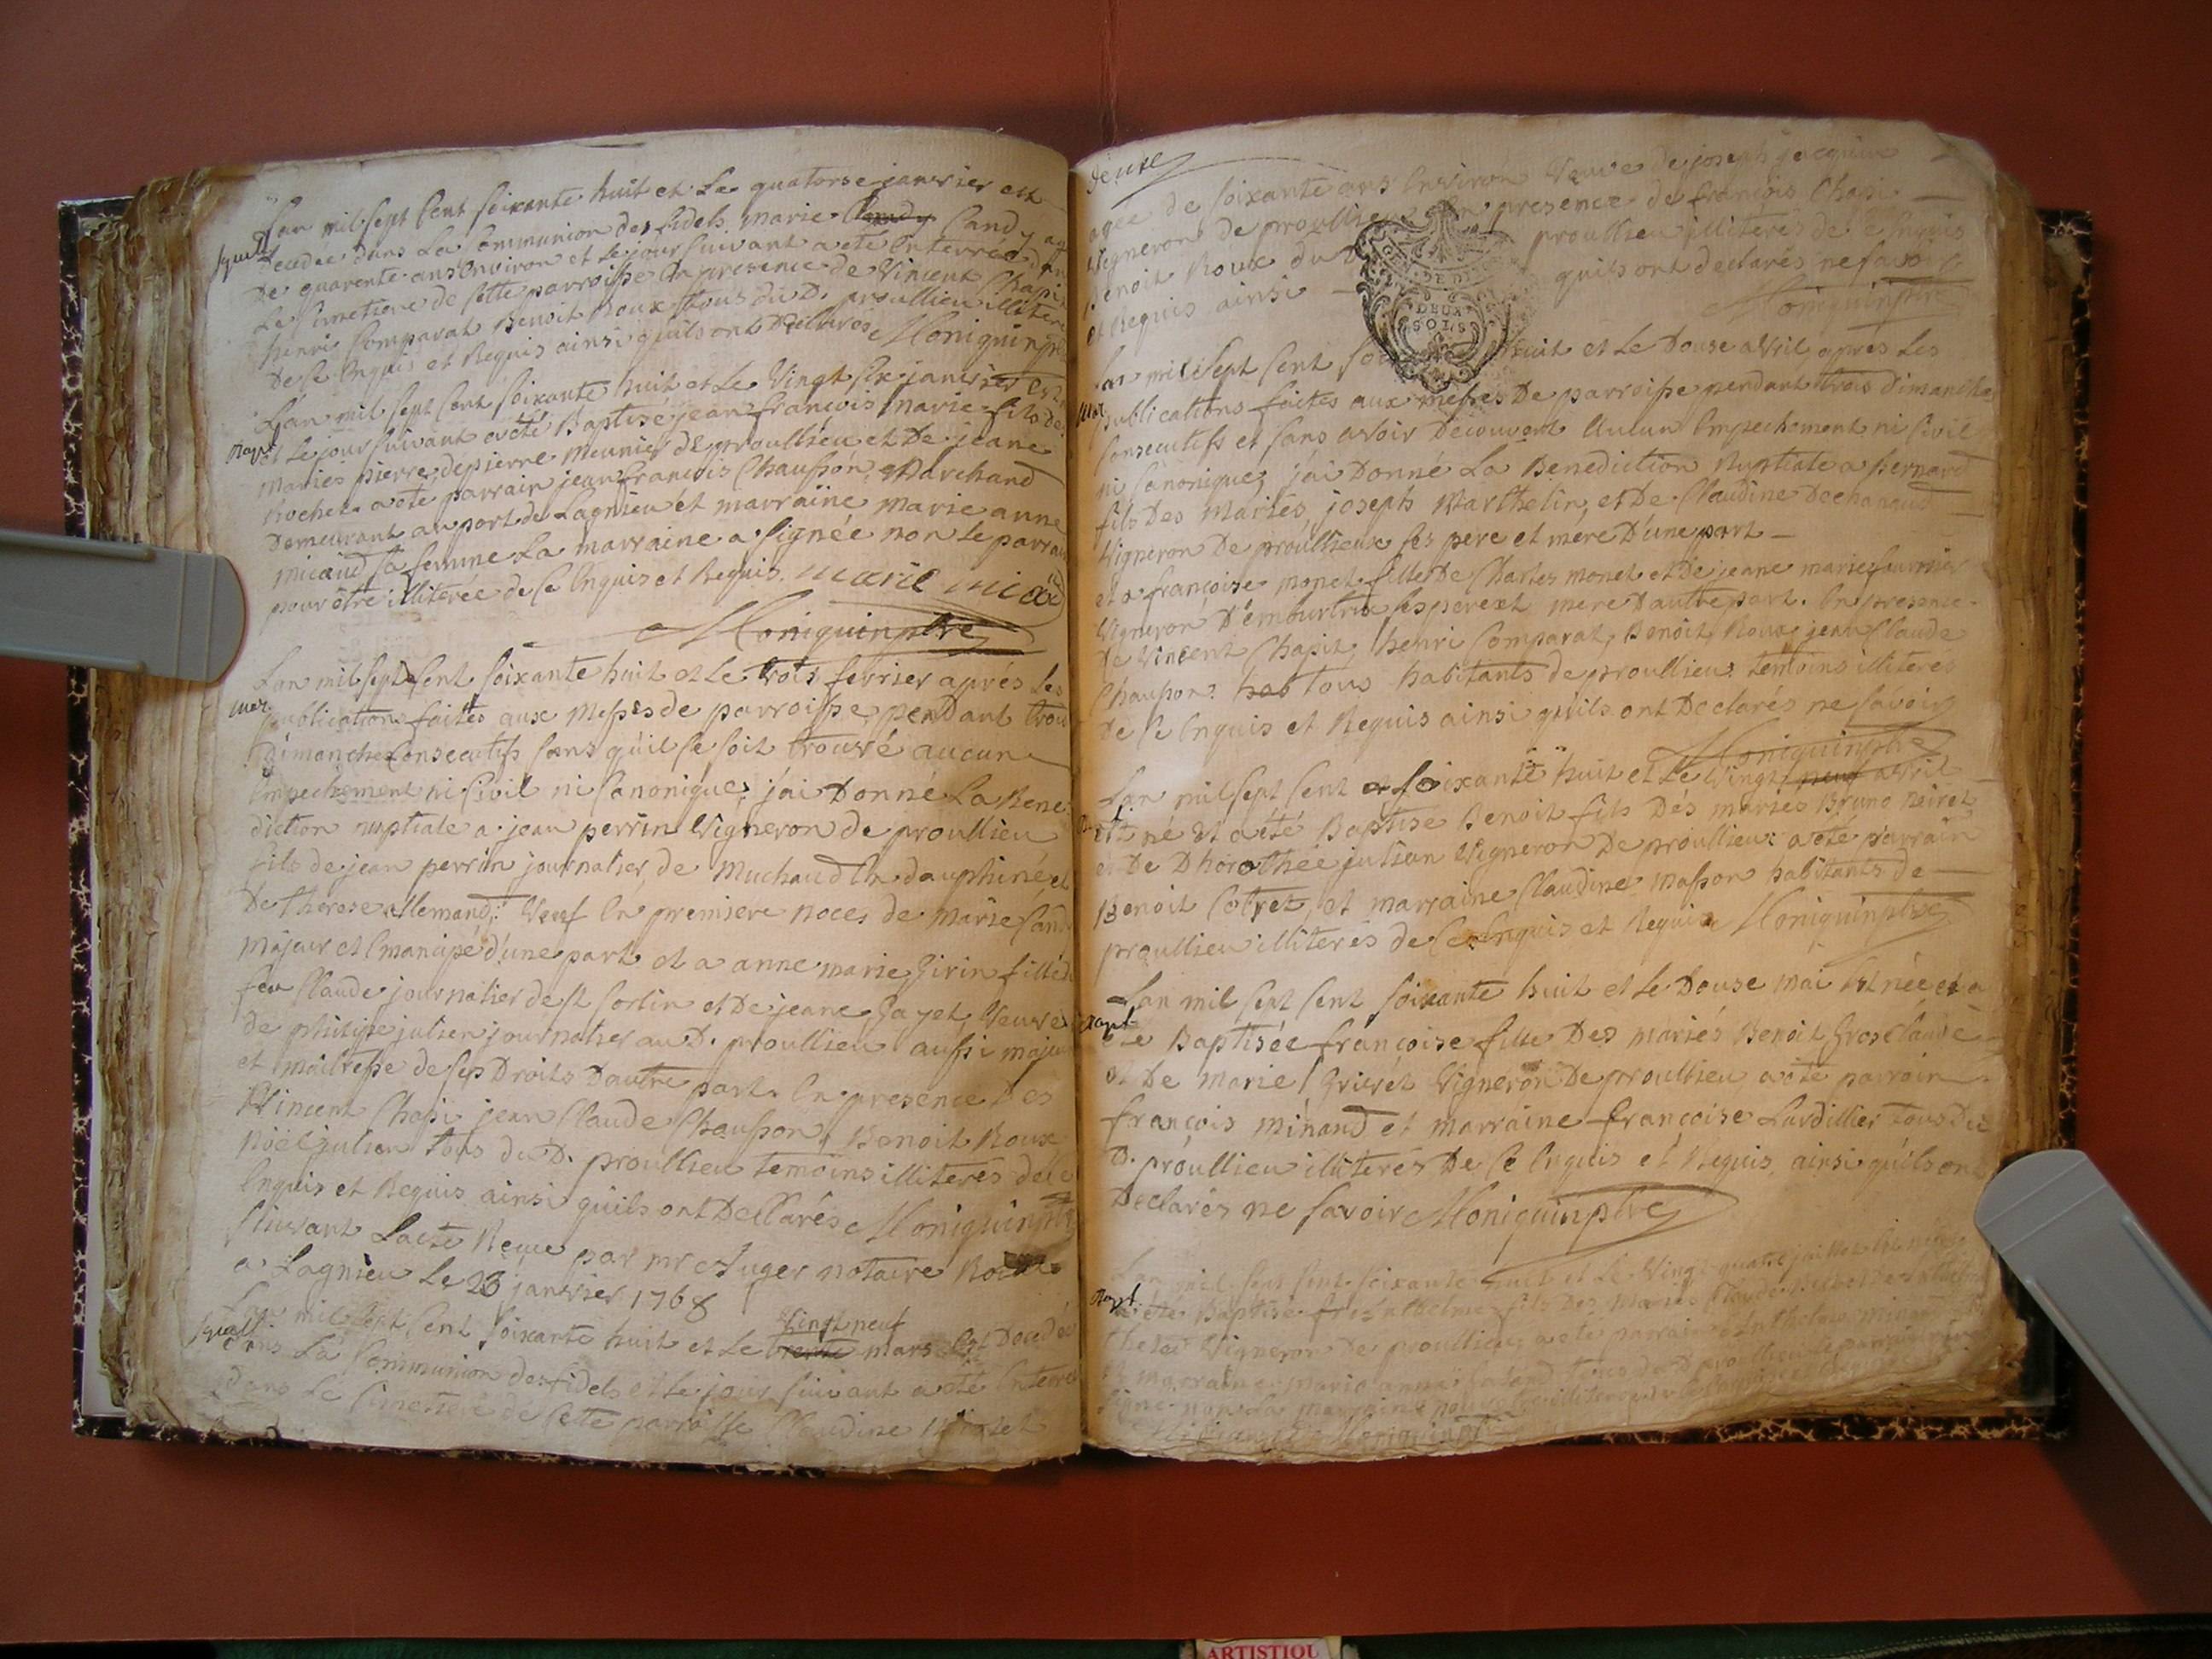 Lan mil sept Cent soixante huit et Le quatorse janvier est
sepult Decedée dans La Communion des fidels marie Candy agée
De quarente ans Environ et Le jour suivant a eté Enterrée dans
Le Cimetiere de Cette parroisse En presence de Vincent Chapi
henri Comparat Benoit Roux tous du D. proullieu illiteres
De Ce Enquis et Requis ainsi quils ont Declarés Moniquin ptre
Lan mil sept Cent soixante huit et Le Vingt six janvier est né
Bapt. et Le jour suivant a eté Baptisé jean françois marie fils des
mariés pierre, de pierre meunier de proullieu et De jeane
Rochet a eté parrain jean françois Chausson Marchand
Demeurant au port de Lagnieu et marraine marie anne
micaud sa femme La marraine a signée non Le parrain
pour être illiterée de Ce Enquis et Requis. marie micaud
Moniquin ptre
Lan mil sept Cent soixante huit et Le trois fevrier après Les
mar. publications faites aux Messes de parroisse pendant trois
dimanches Consecutifs sans qu'il se soit trouvé aucun
Empechement ni Civil ni Canonique, j'ai Donné La Bene
diction nuptiale a jean perrin Vigneron de proullieu
fils de jean perrin journalier, de Muchaud En dauphiné et
De therese allemand, Veuf En premiere noces de marie Candy
majeur et Emancipé d'une part et a anne marie Girin fille de
feu Claude journalier de st Sorlin et De jeane Gayet Veuve
de philipe julien journalier au D. proullieu aussi majeure
et maitresse de ses Droits D'autre part. En presence Des
Vincent Chapi jean Claude Chausson, Benoit Roux
Noël julien tous du D. proullieu temoins illiteres de Ce
Enquis et Requis ainsi quils ont Declarés Moniquin ptre
suivant L'acte Reçue par mr Auger notaire Roial
a Lagnieu Le 23 janvier 1768
Vingt neuf
Lan mil sept Cent soixante huit et Le trente mars Est Decedée
sepult. dans La Communion des fidels et Le jour suivant a eté Enterrée
dans Le Cimetiere de Cette parroisse Claudine
Deuxe
agée de soixante ans Environ Veuve de joseph jacquin
Vigneron de proullieu En presence de françois Chapi
Benoit Roux du D proullieu illiteres de Ce Enquis
et Requis ainsi quils ont declarés ne savoir
Moniquin ptre
DEUX
SOLS
Lan mil sept Cent soixante huit et Le Douse avril après Les
mar. publications faites aux messes De parroisse pendant trois dimanches
Consecutifs et sans avoir Decouvert Aucun Empechement ni Civil
ni Canonique, j'ai Donné La Benediction Nuptiale a Bernard
fils Des Mariés joseph Warthelin, et De Claudine Dechanaud
Vigneron De proullieux ses pere et mere D'une part
et a françoise monet fille De Charles monet et De jeane marie fournier
Vigneron D'embutrix, ses pere et mere D'autre part. En presence
de Vincent Chapit, henri Comparat, Benoit Roux, jean Claude
Chausson. hab tous habitants de proullieu temoins illiteres
De Ce Enquis et Requis ainsi qu'ils ont Declarés ne savoir
Moniquin ptre
Lan mil sept Cent et soixante huit et Le Vingt neuf avril
Bapt. est né et a été Baptisé Benoit fils Dés mariés Bruno Neiret
et De Dhorothée julian Vigneron De proullieu: a eté parrain
Benoit Cotret, et marraine Claudine masson habitants de
proullieu illiteres de Ce Enquis et Requis Moniquin ptre
Lan mil sept Cent soixante huit et Le Douse mai Est née et a
Bapt. été Baptisée françoise fille Des mariés Benoit Gros Claude
et De Marie Grivet Vigneron De proullieu a eté parrain
françois minand et marraine françoise Lardillier tous du
D. proullieu illiteres De Ce Enquis et Requis, ainsi qu'ils ont
Declarés ne savoir Moniquin ptre
Lan mil sept Cent soixante huit et Le Vingt quatre juillet Est né et
Bapt. a eté Baptisé Anthelme fils Des Mariés Claude
Vigneron De proullieu, a eté parrain Anthelme
et marraine marie anne tous du D proullieu Le parrain
signé non La marraine pour être illiterée de Ce Enquis et Requis
Moniquin ptre
ARTISTIQU